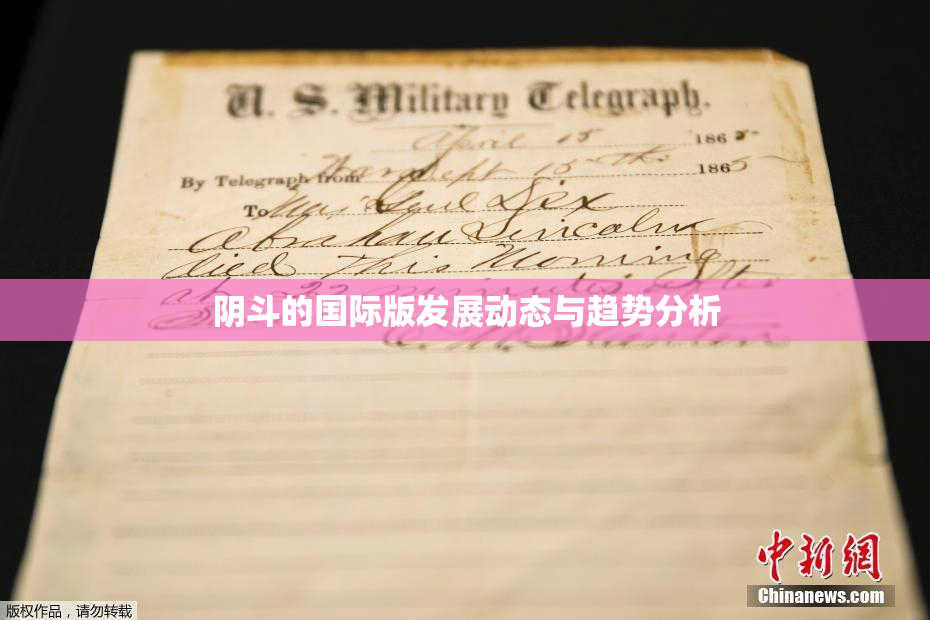 U. S. Military Telegraph.
April 15 1865
By Telegraph from War Dept 15th 1865
To Maj Genl Dix
Abraham Lincoln
died This Morning
at 22 minutes after
阴斗的国际版发展动态与趋势分析
中新网
Chinanews.com
版权作品，请勿转载